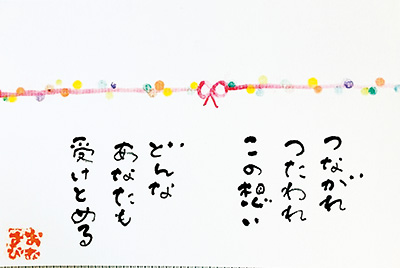 つながれ
つたわれ
この想い
どんな
あなたも
受けとめる
おお
むすび